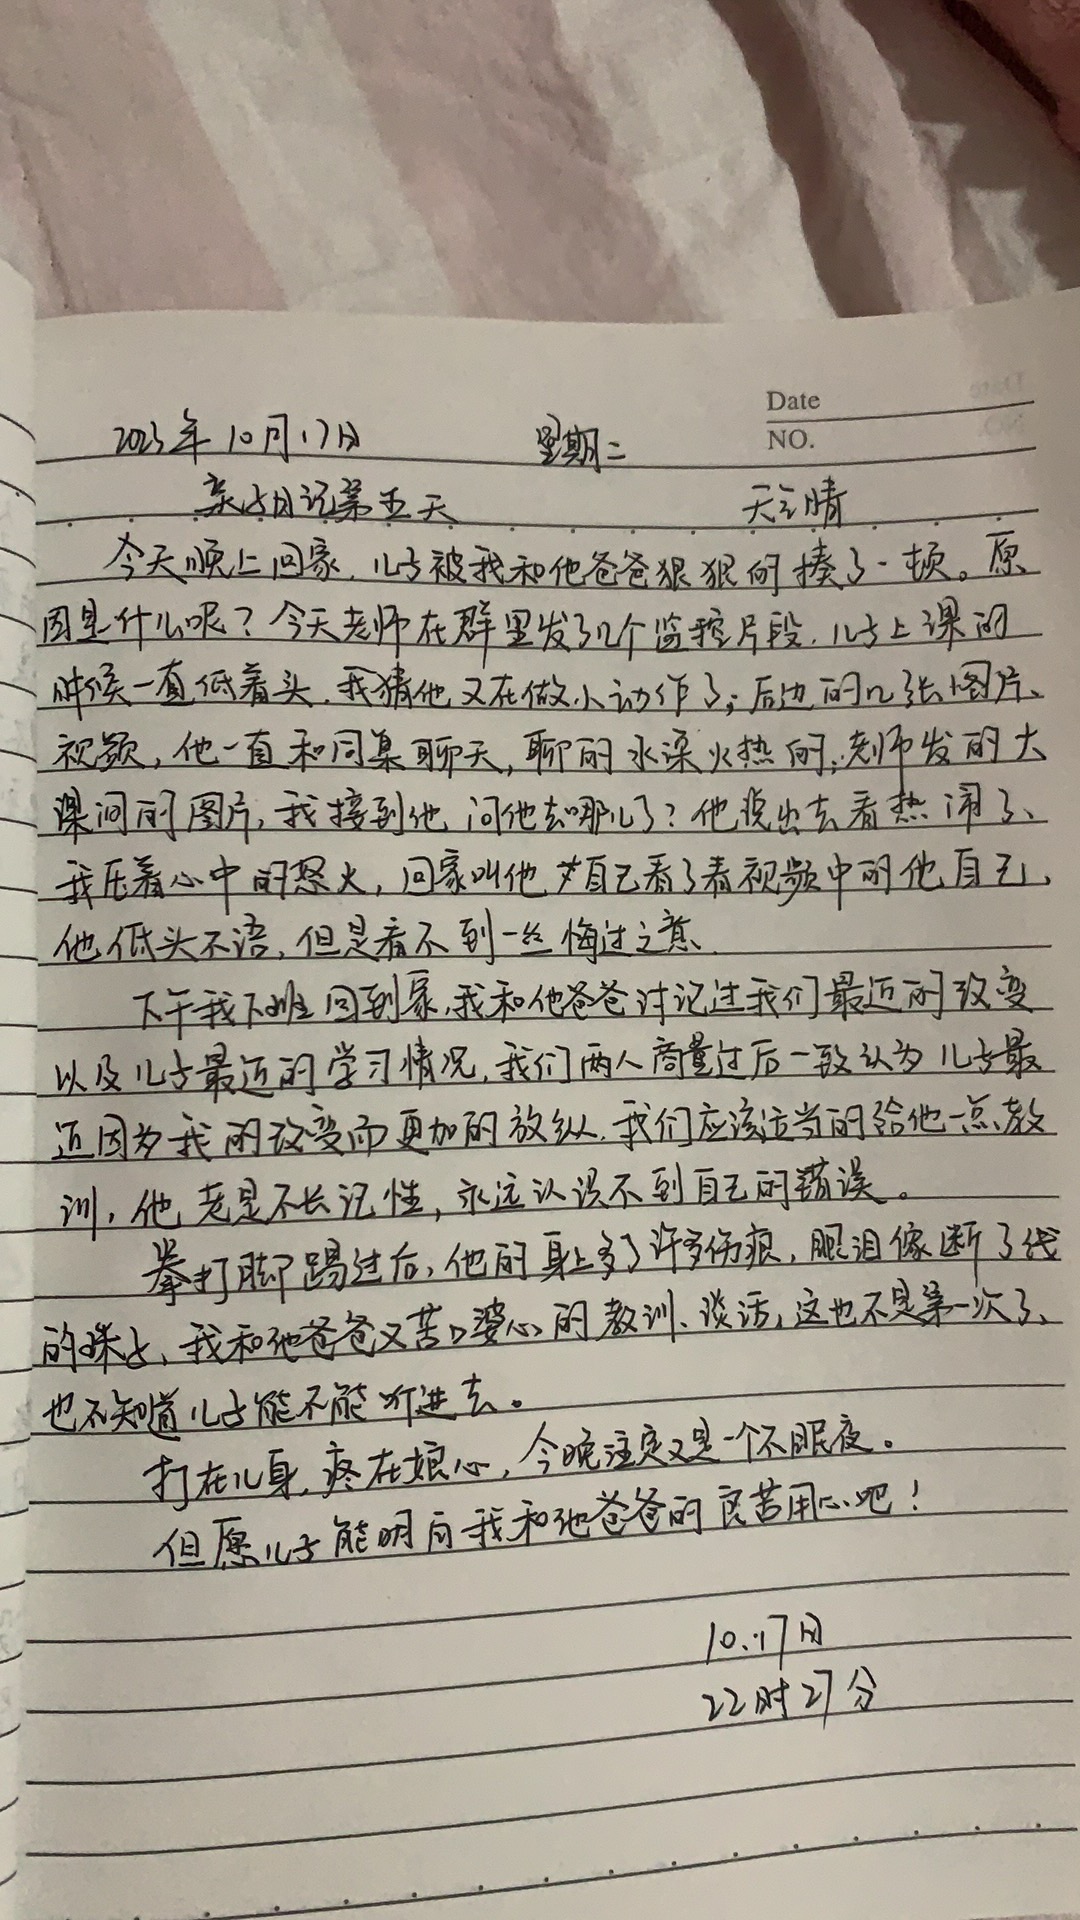 Date
NO.
2023年10月17日 星期二
亲子日记第五天 天气晴
今天晚上回家,儿子被我和他爸爸狠狠的揍了一顿。原
因是什么呢?今天老师在群里发了几个监控片段,儿子上课的
时候一直低着头,我猜他又在做小动作了;后边的几张图片、
视频,他一直和同桌聊天,聊的水深火热的;老师发的大
课间的图片,我接到他,问他去哪儿了?他说出去看热闹了、
我压着心中的怒火,回家叫他自己看了看视频中的他自己,
他低头不语,但是看不到一丝悔过之意、
下午我下班回到家,我和他爸爸讨论过我们最近的改变
以及儿子最近的学习情况,我们两人商量过后一致认为儿子最
近因为我的改变而更加的放纵,我们应该适当的给他一点教
训,他老是不长记性,永远认识不到自己的错误。
拳打脚踢过后,他的身上多了许多伤痕,眼泪像断了线
的珠子、我和他爸爸又苦口婆心的教训、谈话,这也不是第一次了、
也不知道儿子能不能听进去。
打在儿身,疼在娘心,今晚注定又是一个不眠夜。
但愿儿子能明白我和他爸爸的良苦用心吧!
10.17日
22时27分